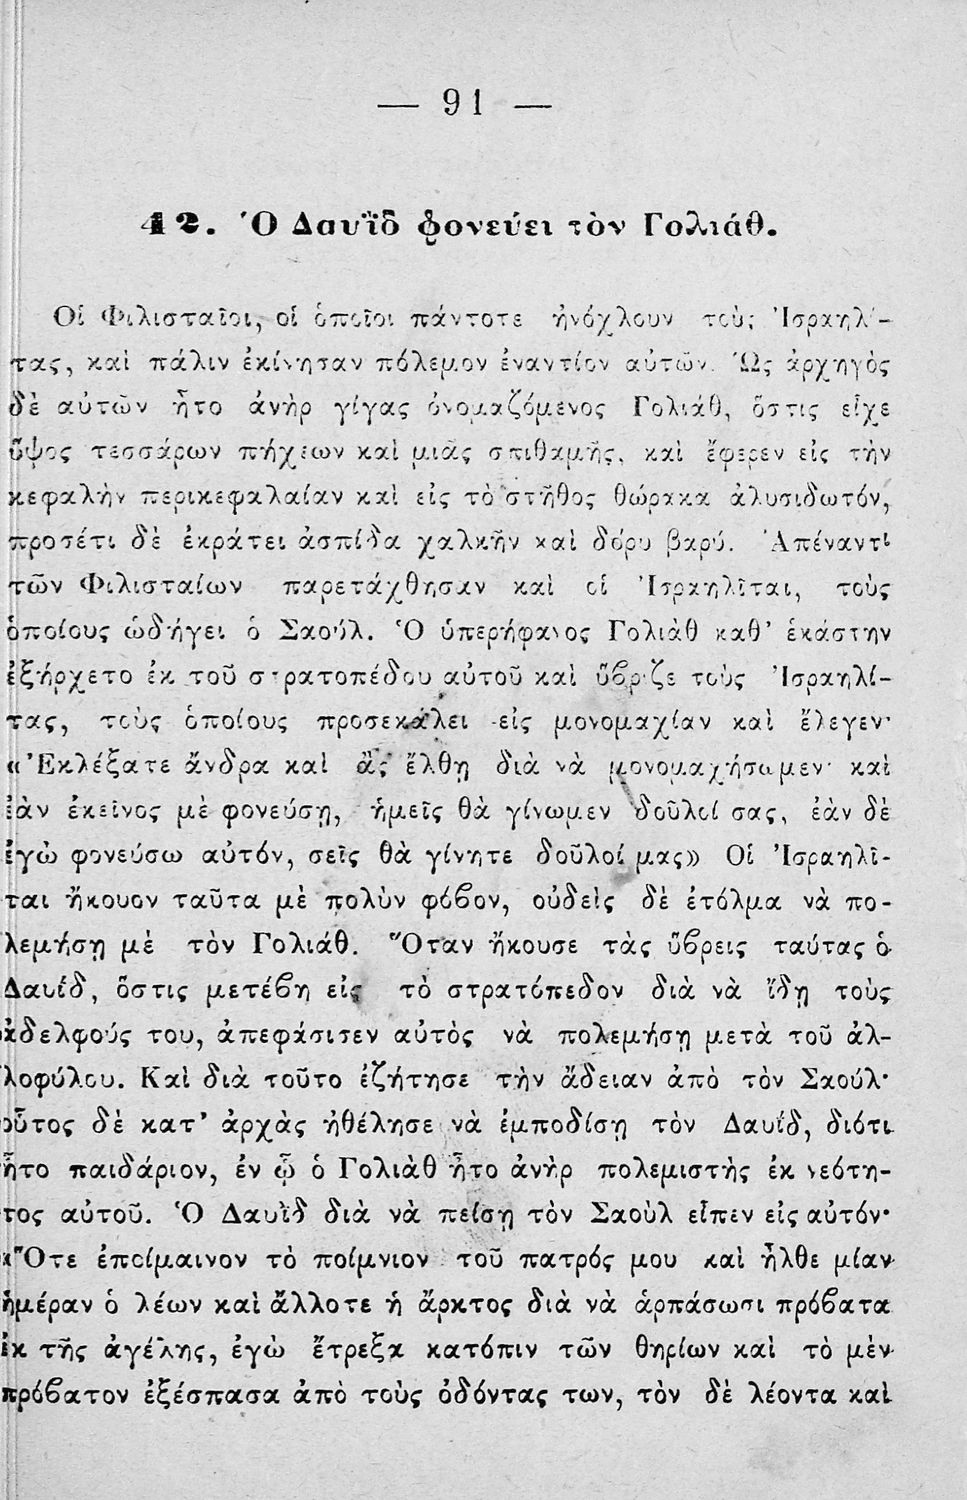 — 91 —
42. Ὁ Δαυῒδ φονεύει τὸν Γολιάθ.
Οἱ Φιλισταῖοι, οἱ ὁποῖοι πάντοτε ἠνόχλουν τοὺς Ἰσραηλί-
τας, καὶ πάλιν ἐκίνησαν πόλεμον ἐναντίον αὐτῶν. Ὡς ἀρχηγὸς
δὲ αὐτῶν ἦτο ἀνὴρ γίγας ὀνομαζόμενος Γολιάθ, ὅστις εἶχε
ὕψος τεσσάρων πήχεων καὶ μιᾶς σπιθαμῆς, καὶ ἔφερεν εἰς τὴν
κεφαλὴν περικεφαλαίαν καὶ εἰς τὸ στῆθος θώρακα ἁλυσιδωτόν,
προσέτι δὲ ἐκράτει ἀσπίδα χαλκῆν καὶ δόρυ βαρύ. Ἀπέναντι
τῶν Φιλισταίων παρετάχθησαν καὶ οἱ Ἰσραηλῖται, τοὺς
ὁποίους ὡδήγει ὁ Σαούλ. Ὁ ὑπερήφανος Γολιὰθ καθ’ ἑκάστην
ἐξήρχετο ἐκ τοῦ στρατοπέδου αὐτοῦ καὶ ὕβριζε τοὺς Ἰσραηλί-
τας, τοὺς ὁποίους προσεκάλει εἰς μονομαχίαν καὶ ἔλεγεν·
«Ἐκλέξατε ἄνδρα καὶ ἂς ἔλθῃ διὰ νὰ μονομαχήσωμεν· καὶ
ἐὰν ἐκεῖνος μὲ φονεύσῃ, ἡμεῖς θὰ γίνωμεν δοῦλοί σας, ἐὰν δὲ
ἐγὼ φονεύσω αὐτόν, σεῖς θὰ γίνητε δοῦλοί μας» Οἱ Ἰσραηλῖ-
ται ἤκουον ταῦτα μὲ πολὺν φόβον, οὐδεὶς δὲ ἐτόλμα νὰ πο-
λεμήσῃ μὲ τὸν Γολιάθ. Ὅταν ἤκουσε τὰς ὕβρεις ταύτας ὁ
Δαυίδ, ὅστις μετέβη εἰς τὸ στρατόπεδον διὰ νὰ ἴδῃ τοὺς
ἀδελφούς του, ἀπεφάσισεν αὐτὸς νὰ πολεμήσῃ μετὰ τοῦ ἀλ-
λοφύλου. Καὶ διὰ τοῦτο ἐζήτησε τὴν ἄδειαν ἀπὸ τὸν Σαούλ·
οὗτος δὲ κατ’ ἀρχὰς ἠθέλησε νὰ ἐμποδίσῃ τὸν Δαυίδ, διότι
ἦτο παιδάριον, ἐν ᾧ ὁ Γολιὰθ ἦτο ἀνὴρ πολεμιστὴς ἐκ νεότη-
τος αὐτοῦ. Ὁ Δαυὶδ διὰ νὰ πείσῃ τὸν Σαοὺλ εἶπεν εἰς αὐτόν·
«Ὅτε ἐποίμαινον τὸ ποίμνιον τοῦ πατρός μου καὶ ἦλθε μίαν
ἡμέραν ὁ λέων καὶ ἄλλοτε ἡ ἄρκτος διὰ νὰ ἁρπάσωσι πρόβατα
ἐκ τῆς ἀγέλης, ἐγὼ ἔτρεξα κατόπιν τῶν θηρίων καὶ τὸ μὲν
πρόβατον ἐξέσπασα ἀπὸ τοὺς ὀδόντας των, τὸν δὲ λέοντα καὶ